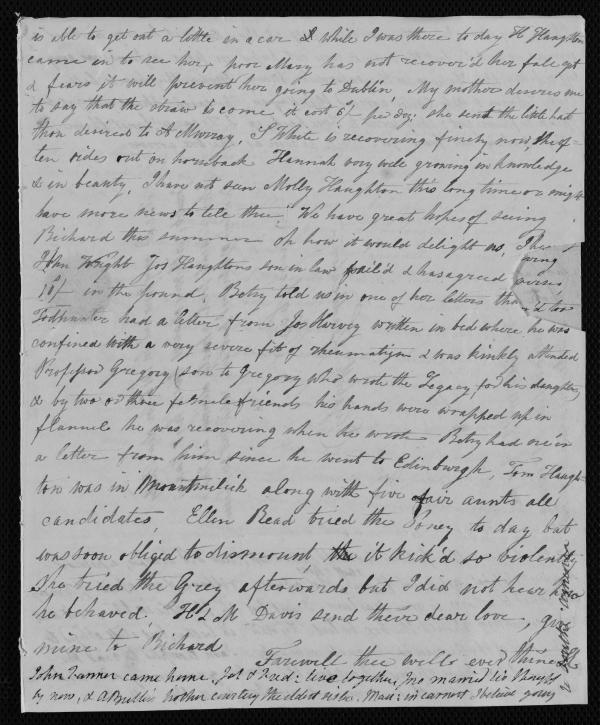 is able to get out a little in a car & while I was there to day H Haughton
came in to see her, poor Mary has not recover'd her fall yet
& fears it will prevent her going to Dublin, My mother desires me
to say that the straw to come it cost 6/- per doz: she sent the little hat
thou desired to A Murray, S White is recovering finely now, she of-
ten rides out on horseback Hannah very well growing in knowledge
& in beauty, I have not seen Molly Haughton this long time or might
have more news to tell thee. We have great hopes of seeing
Richard this summer oh how it would delight us,
John Wright Jos Haughtons son in law fail'd & has agreed
10/- in the pound, Betsy told us in one of her letters that
Todhunter had a letter from Jos Harvey written in bed where he was
confined with a very severe fit of rheumatism & was kindly attended
Professor Gregory (son to Gregory who wrote the Legacy for his daughters)
& by two or three female friends his hands were wrapped up in
flannel he was recovering when he wrote Betsy had one in
a letter from him since he went to Edinburgh, Tom Haugh-
ton was in Mountmelick along with five fair aunts all
candidates, Ellen Read tried the Poney to day but
was soon obliged to dismount, it kick'd so violently
She tried the Grey afterwards but I did not hear how
he behaved, H & M Davis send their dear love, give
mine to Richard
Farewell thee well ever thine
John Farmer came home, Jos & Fred: live together, married
by now, & courting the eldest Miss in earnest I believe going